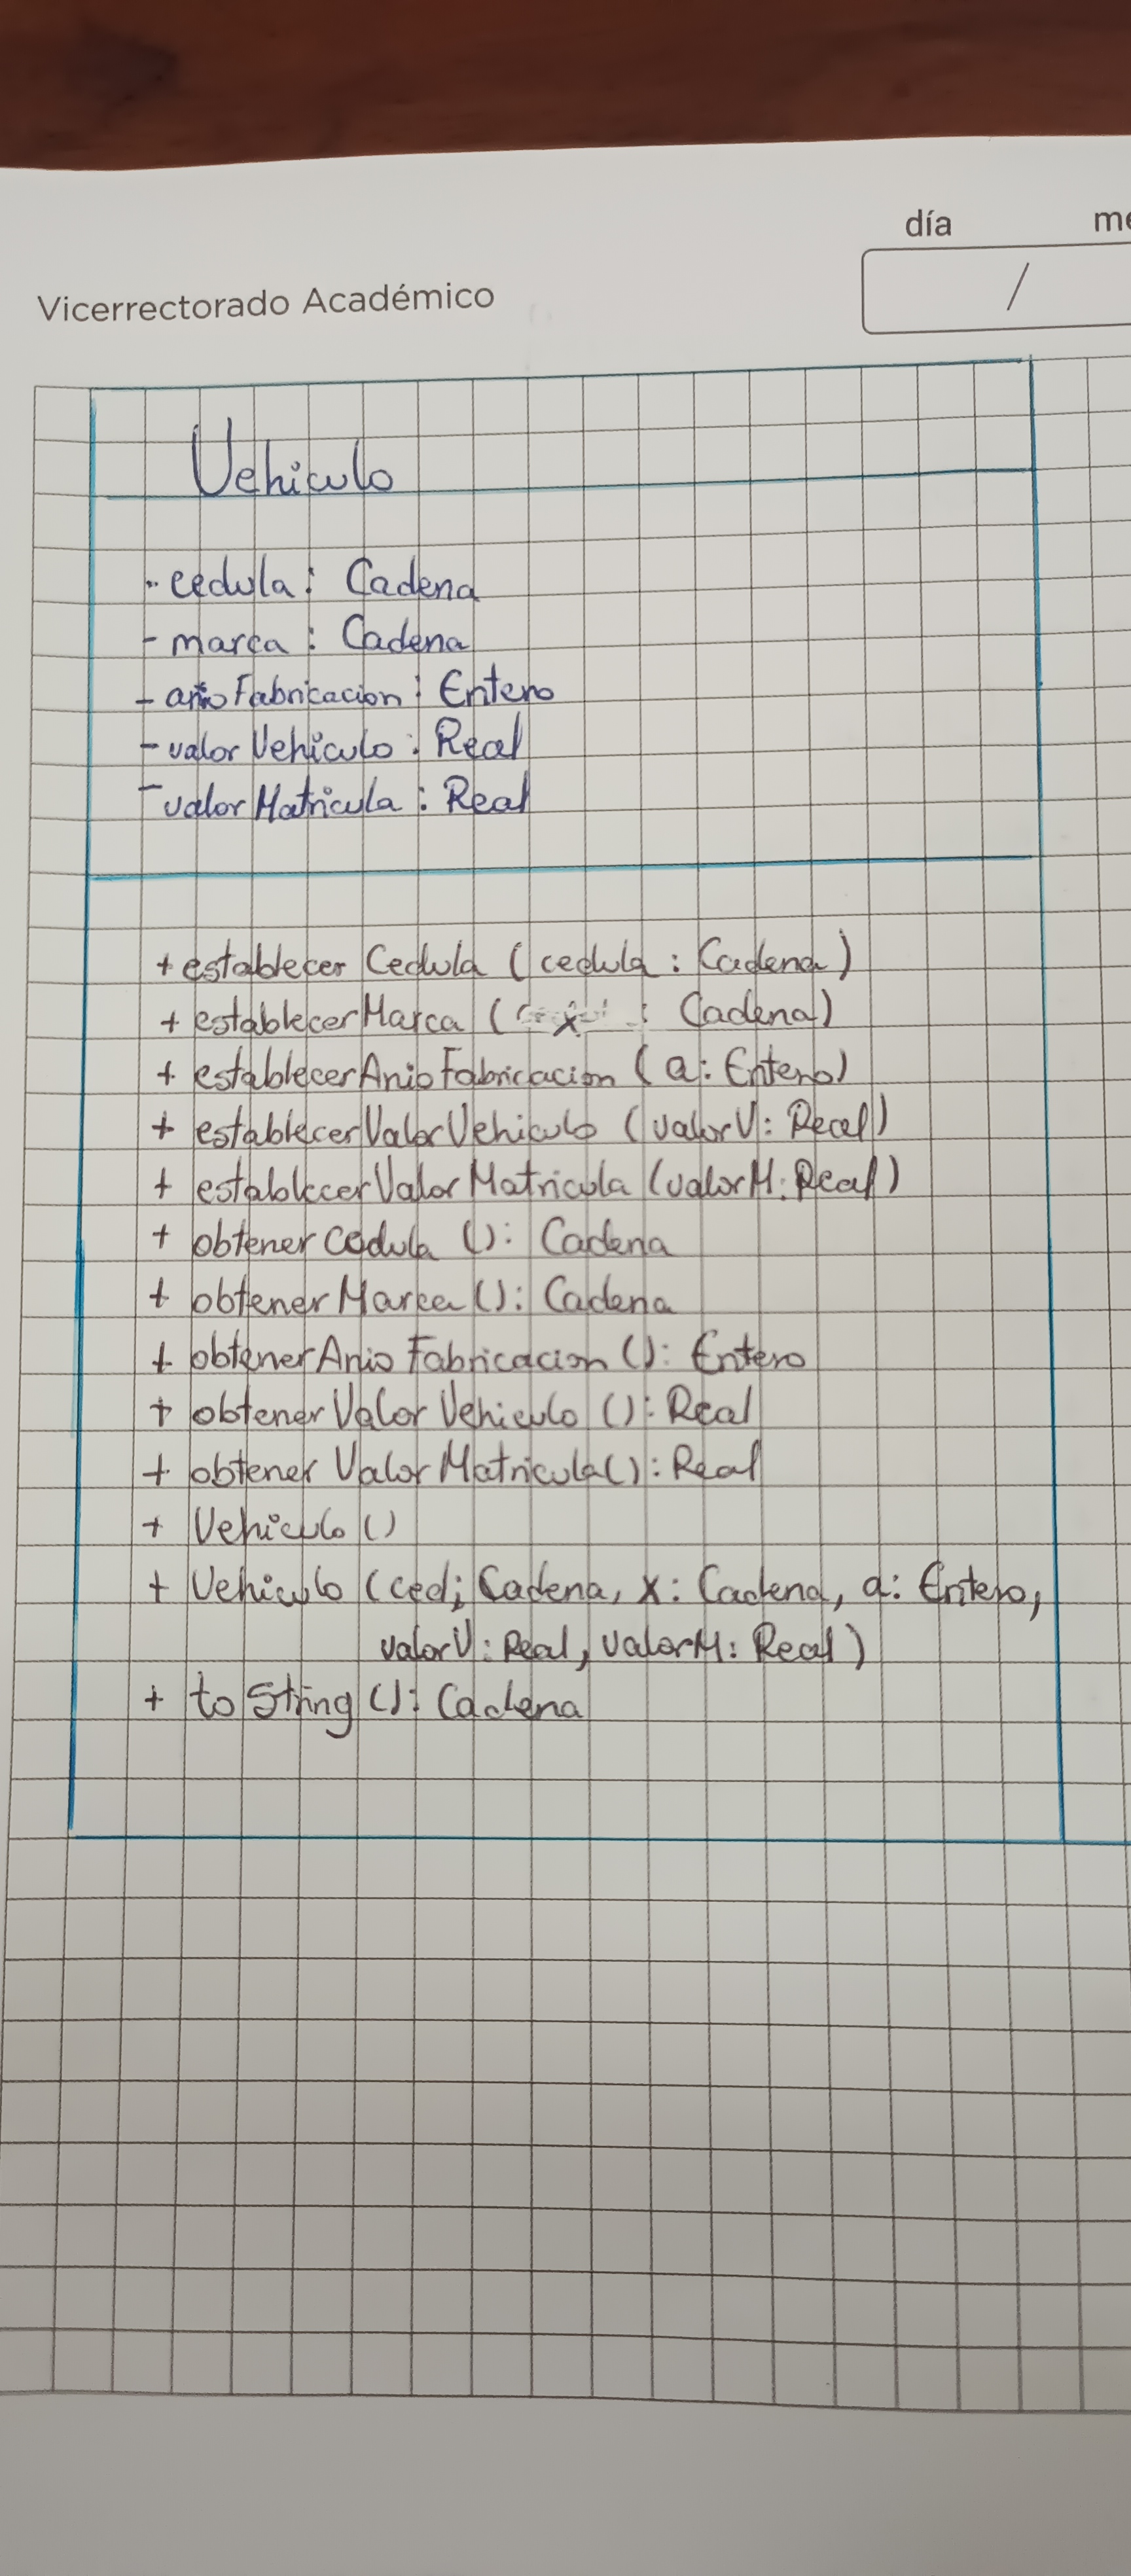 día me
/
Vicerrectorado Académico
Vehiculo
- cedula: Cadena
- marca: Cadena
- anioFabricacion: Entero
- valorVehiculo: Real
- valorMatricula: Real
+ establecerCedula (cedula: Cadena)
+ establecerMarca (x: Cadena)
+ establecerAnioFabricacion (a: Entero)
+ establecerValorVehiculo (valorV: Real)
+ establecerValorMatricula (valorM: Real)
+ obtenerCedula (): Cadena
+ obtenerMarca (): Cadena
+ obtenerAnioFabricacion (): Entero
+ obtenerValorVehiculo (): Real
+ obtenerValorMatricula(): Real
+ Vehiculo ()
+ Vehiculo (ced; Cadena, x: Cadena, a: Entero,
valorV: Real, valorM: Real)
+ toString (): Cadena